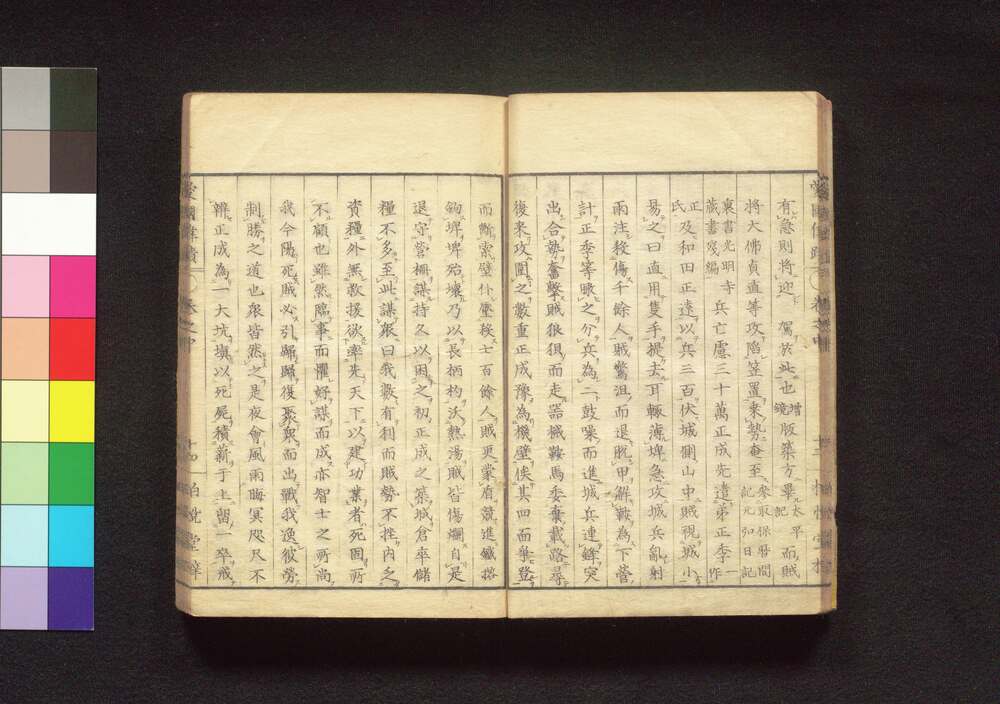 有急則將迎 駕於此也增鏡版築方畢太平記而賊
將大佛貞直等攻陷笠置乘勢奄至參取保曆間記元弘日記
裏書光明寺藏書殘編兵亡慮三十萬正成先遣弟正季一作
正氏及和田正遠以兵三百伏城側山中賊視城小
易之曰直用隻手提去耳輙薄埤急攻城兵亂射
雨注殺傷千餘人賊驚沮而退脫甲解鞍為下營
計正季等瞰之分兵為二鼓噪而進城兵連鋒突
出合勢奮擊賊狼狽而走器械鞍馬委棄載路尋
後來攻圍之數重正成豫為機壁俟其四面皋登
而斷索壁仆壓殺士百餘人賊更蒙盾競進鐵搭
鉤埤埤殆壞乃以長柄杓沃熱湯賊皆傷爛自是
退守營柵謀持久以困之初正成之築城倉卒儲
糧不多至此謀衆曰我數有利而賊勢不挫內乏
資糧外無救援欲率先天下以建功業者死固所
不顧也雖然臨事而懼好謀而成亦智士之所尚
我今陽死賊必引歸歸復聚衆而出戰我逸彼勞
制勝之道也衆皆然之是夜會風雨晦冥咫尺不
辨正成為一大坑塡以死屍積薪于上留一卒戒